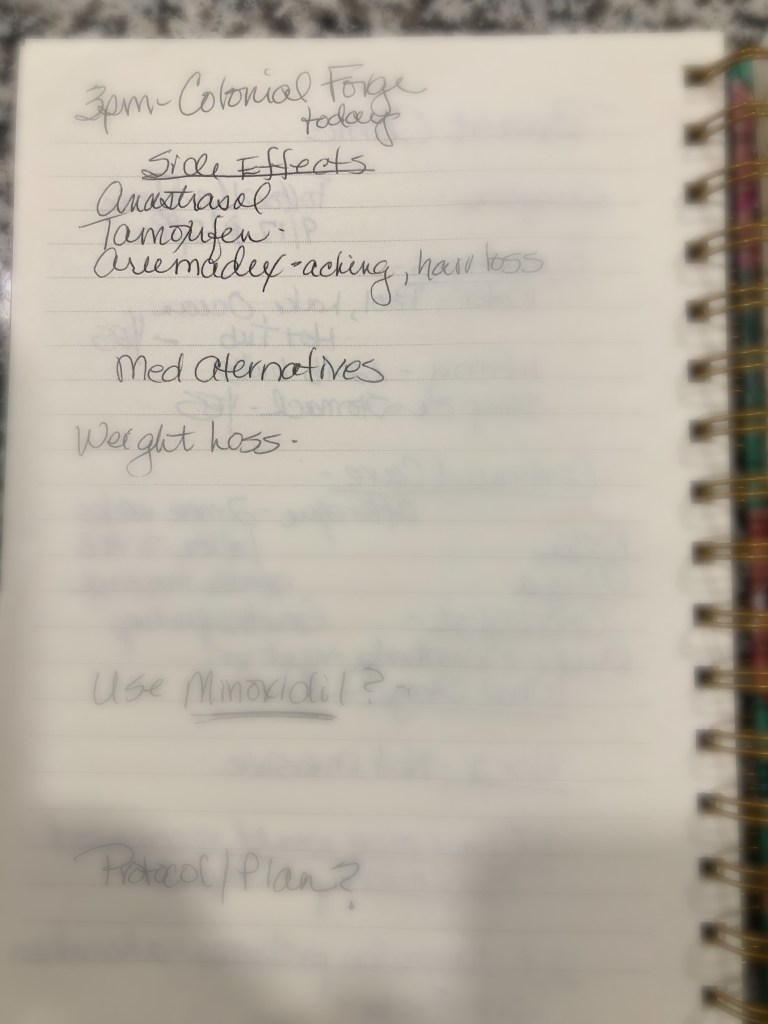 3pm - Colonial Forge
today
Side Effects
Anastrasol
Tamoxifen.
Areemadex - aching, hair loss
Med aternatives
Weight Loss.
Use Minoxidil?
Protocol/Plan?